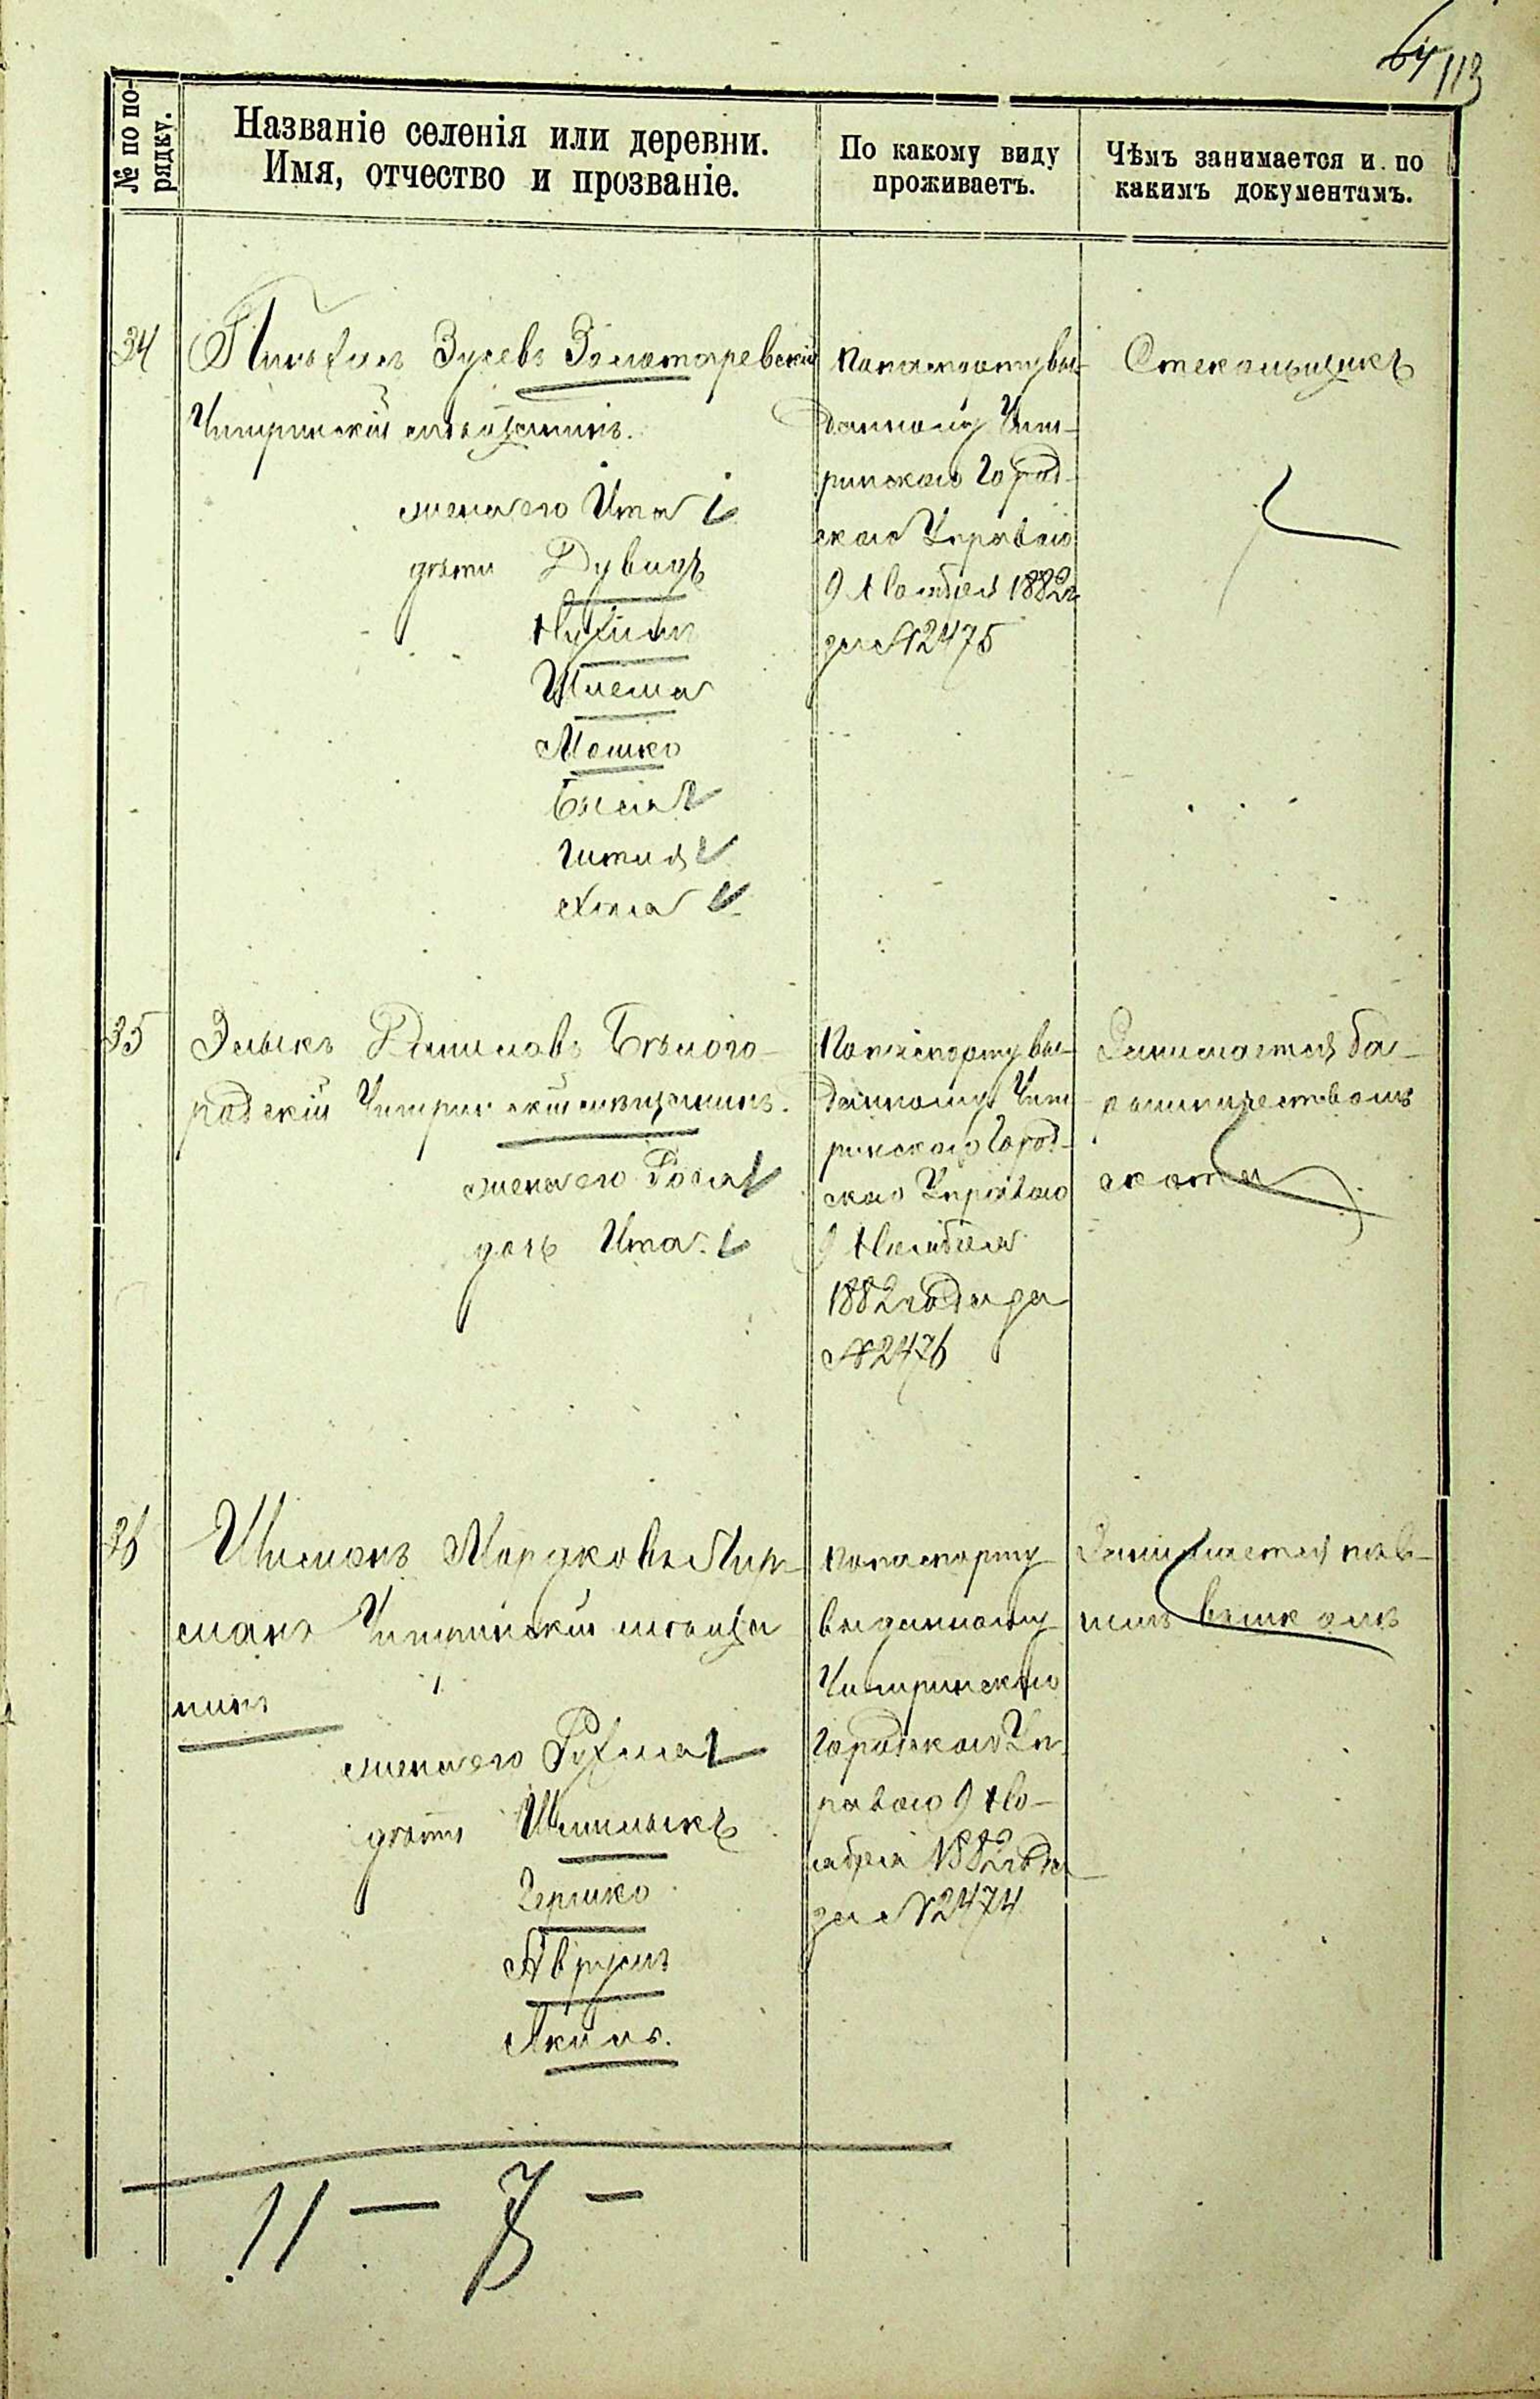 64 113
№ по по-
рядку.
Названіе селенія или деревни.
Имя, отчество и прозваніе.
По какому виду
проживаетъ.
Чѣмъ занимается и по
какимъ документамъ.
34
Пинхасъ Зусевъ Золотаревскій
Читринскій мѣщанинъ.
жена его Ита
дѣти Дувидъ
Нухимъ
Шлема
Мошко
Бася
Гитля
Хая
По паспорту вы-
данному Чит-
ринскою Город-
скою Управою
9 Ноября 1882 г.
за № 2475
Стекольщикъ
35
Эльикъ Даниловъ Бѣлого-
родскій Читринскій мѣщанинъ.
жена его Рося
дочь Ита.
По паспорту вы-
данному Чит-
ринскою Город-
скою Управою
9 Ноября
1882 года за
№ 2476
Занимается ба-
рышничествомъ
скота
36
Шимонъ Мордковъ
манъ Читринскій мѣща
нинъ
жена его Рухля
дѣти Шмилыкъ
Гершко
Аврумъ
Якимъ.
По паспорту
выданному
Читринскою
Городскою Уп-
равою 9 Но-
ября 1882 года
за № 2474
Занимается
11 — 7 —